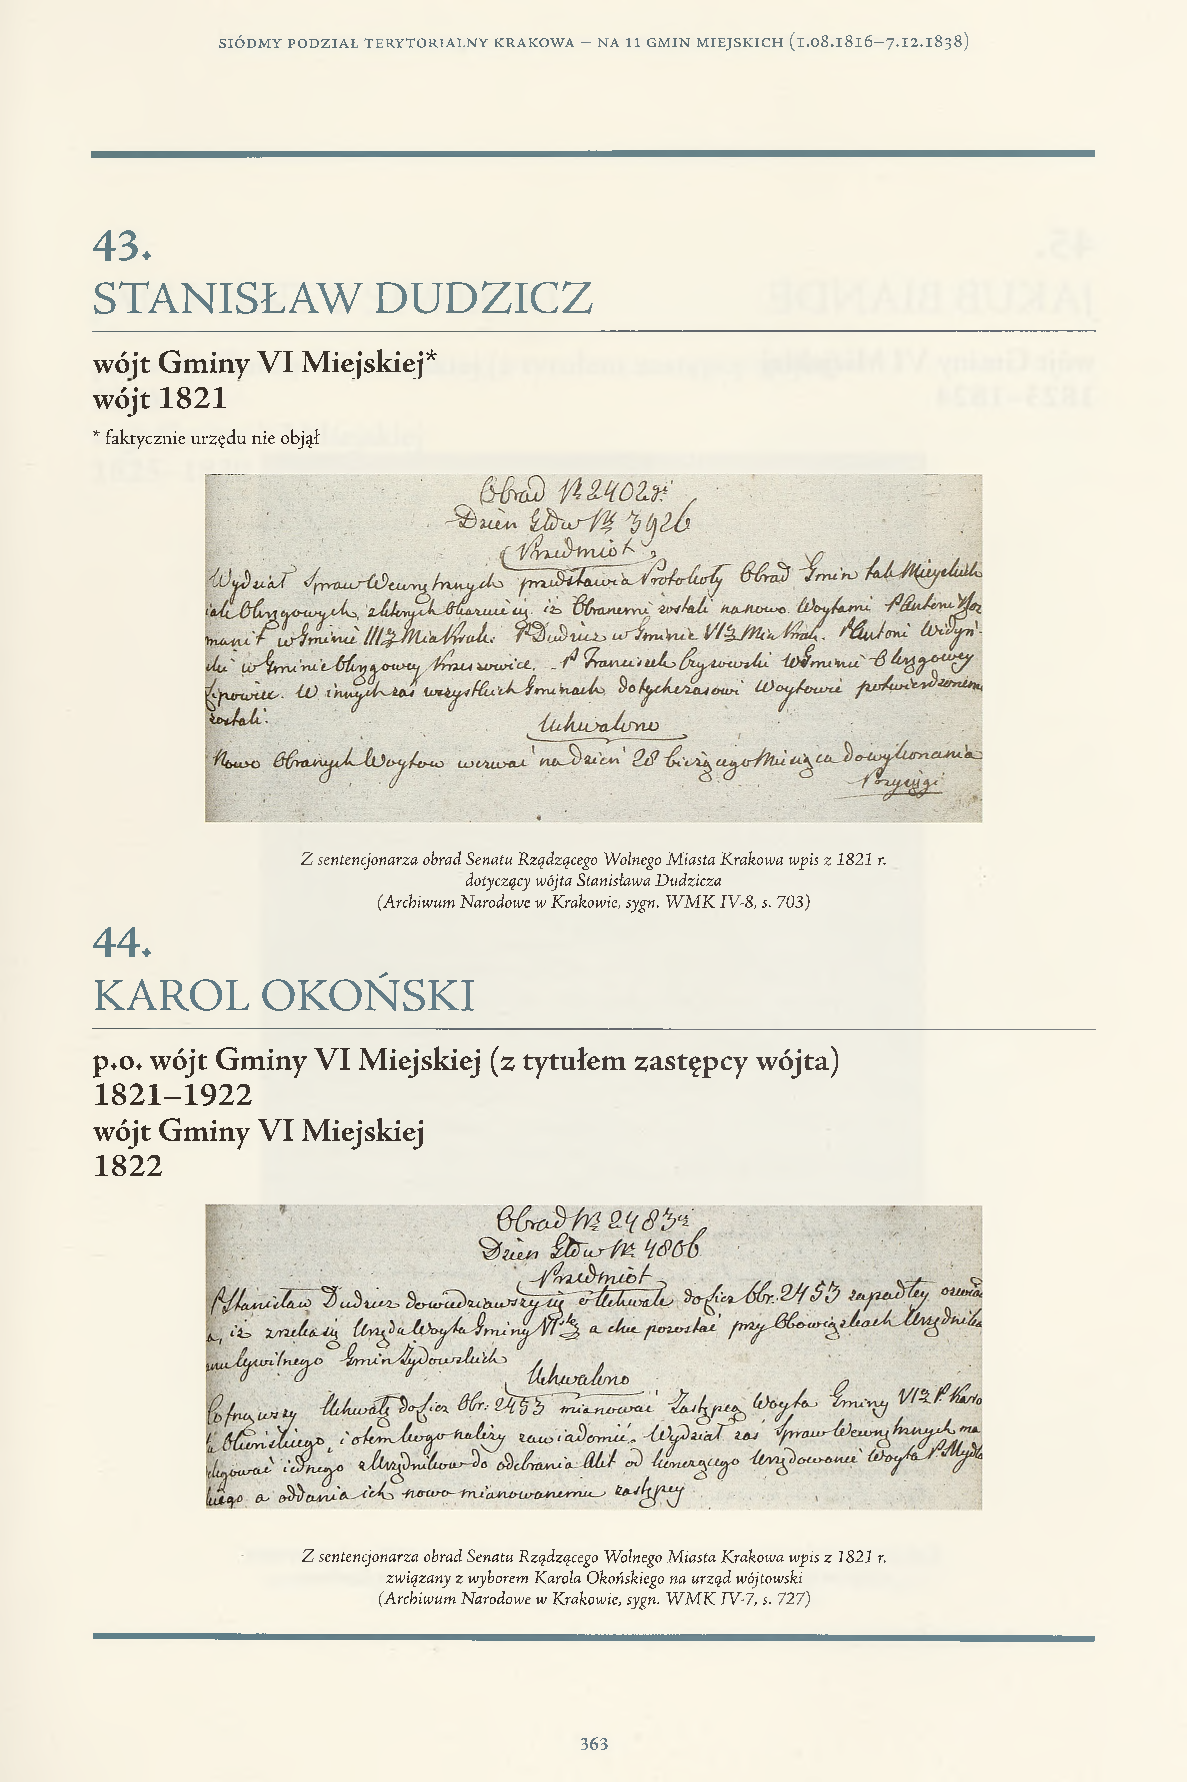 SIÓDMY PODZIAŁ TERYTORIALNY KRAKOWA – NA 11 GMIN MIEJSKICH (1.08.1816–7.12.1838)
43.
STANISŁAW DUDZICZ
wójt Gminy VI Miejskiej*
wójt 1821
* faktycznie urzędu nie objął
Obrad Nr 2402gi
Dzien Głów Nr 3926
Przedmiot
Wydział Spraw Wewnętrznych przedstawia Protokoły Obrad Gmin tak Mieyskich
iak Okręgowych, z których okazuie się, iż Obranemi zostali na nowo Woytami P. Antoni
w Gminie III M. Krak: P. Dudzicz w Gminie VI M. Krak. P. Antoni
w Gminie Okręgowey Krzeszowice, P. Franciszek w Gminie Okręgowey
Lipowiec. W innych zaś wszystkich Gminach dotychczasowi Woytowie potwierdzonemi
zostali.
Uchwalono
Nowo Obranych Woytow wezwać na dzień 28 bieżącego Miesiąca do wykonania
Przysięgi
Z sentencjonarza obrad Senatu Rządzącego Wolnego Miasta Krakowa wpis z 1821 r.
dotyczący wójta Stanisława Dudzicza
(Archiwum Narodowe w Krakowie, sygn. WMK IV-8, s. 703)
44.
KAROL OKOŃSKI
p.o. wójt Gminy VI Miejskiej (z tytułem zastępcy wójta)
1821–1922
wójt Gminy VI Miejskiej
1822
Obrad Nr 2483ci
Dzien Głów Nr 4806
Przedmiot
P. Stanisław Dudzicz dowiedziawszy się o Uchwale do licz. Obr. 2453 zapadłey
iż zrzeka się Urzędu Woyta Gminy VI a chce pozostać przy Obowiązkach Urzędnika
Cywilnego Gmin Żydowskich
Uchwalono
Cofnąwszy Uchwałę do licz Obr: 2453 mianować Zastępcą Woyta Gminy VI P. Karo
la Okońskiego, i o tem kogo należy zawiadomić, Wydział zaś Spraw Wewnętrznych ma
delegować iednego z Urzędników do odebrania Akt od kończącego Urzędowanie Woyta P.
a oddania ich nowo mianowanemu zastępcy
Z sentencjonarza obrad Senatu Rządzącego Wolnego Miasta Krakowa wpis z 1821 r.
związany z wyborem Karola Okońskiego na urząd wójtowski
(Archiwum Narodowe w Krakowie, sygn. WMK IV-7, s. 727)
363